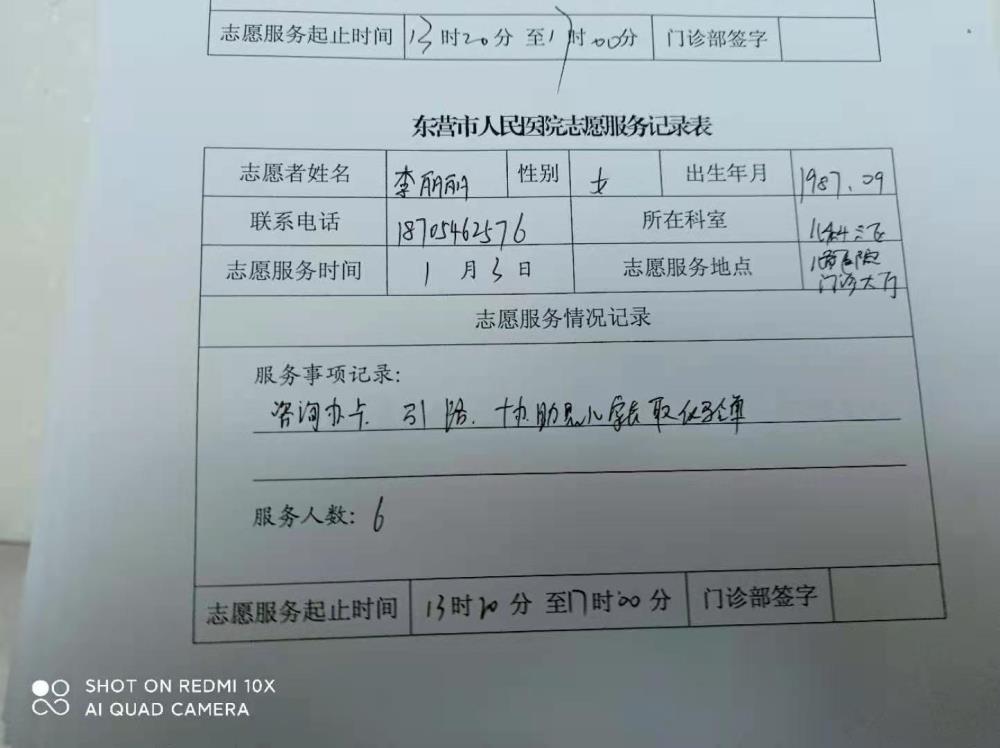 志愿服务起止时间 13时20分 至17时00分 门诊部签字
东营市人民医院志愿服务记录表
志愿者姓名 李丽丽 性别 女 出生年月 1987.09
联系电话 18705462576 所在科室 儿科三
志愿服务时间 1月3日 志愿服务地点 门诊大厅
志愿服务情况记录
服务事项记录:
咨询办卡 引路. 协助患儿家长取化验单
服务人数: 6
志愿服务起止时间 13时20分 至17时00分 门诊部签字
SHOT ON REDMI 10X
AI QUAD CAMERA